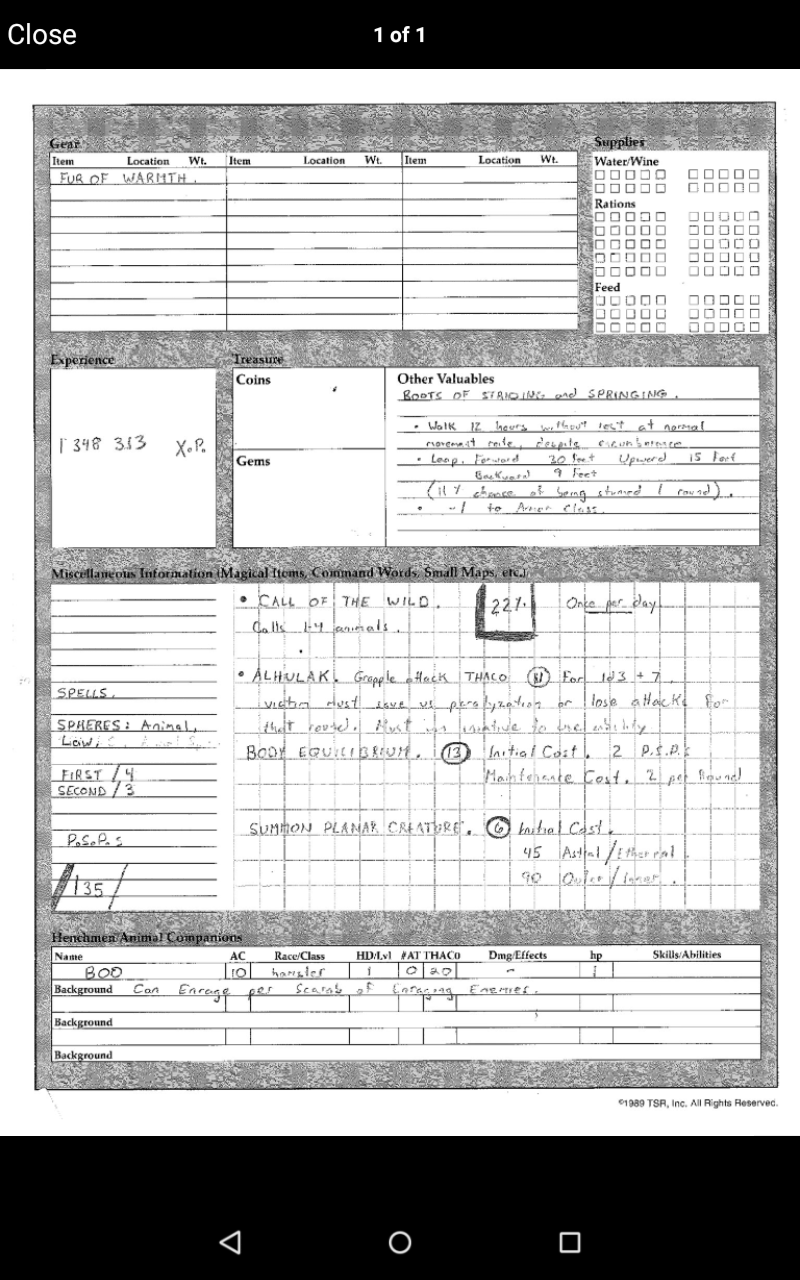 Close
1 of 1
Gear
Supplies
Item Location Wt. Item Location Wt. Item Location Wt.
Water/Wine
FUR OF WARMTH.
Rations
Feed
Experience
Treasure
Coins
Other Valuables
BOOTS OF STRIDING and SPRINGING.
• Walk 12 hours without rest at normal
movement rate, despite encumbrance
1 348 313 X.P.
Gems
• Leap. Forward 30 feet Upward 15 feet
Backward 9 Feet
chance of being stunned 1 round).
• -1 to Armor Class.
Miscellaneous Information (Magical Items, Command Words, Small Maps, etc.)
• CALL OF THE WILD. 22%. Once per day
Calls 1-4 animals.
• ALHULAK. Grapple attack THACO For 1d3 + 7.
victim must save vs paralyzation or lose attacks for
that round. Must win initiative to use ability
SPELLS.
SPHERES: Animal,
Law,
FIRST / 4
SECOND / 3
P.S.P.s
135
BODY EQUILIBRIUM. 13 Initial Cost. 2 P.S.P.s
Maintenance Cost. 2 per Round
SUMMON PLANAR CREATURE. 6 Initial Cost.
45 Astral/Ethereal.
90 Outer/Inner.
Henchmen/Animal Companions
Name AC Race/Class HD/Lvl #AT THAC0 Dmg/Effects hp Skills/Abilities
BOO 10 hamster 1 0 20 - 1
Background Can Enrage per Scarab of Enraging Enemies.
Background
Background
©1989 TSR, Inc. All Rights Reserved.